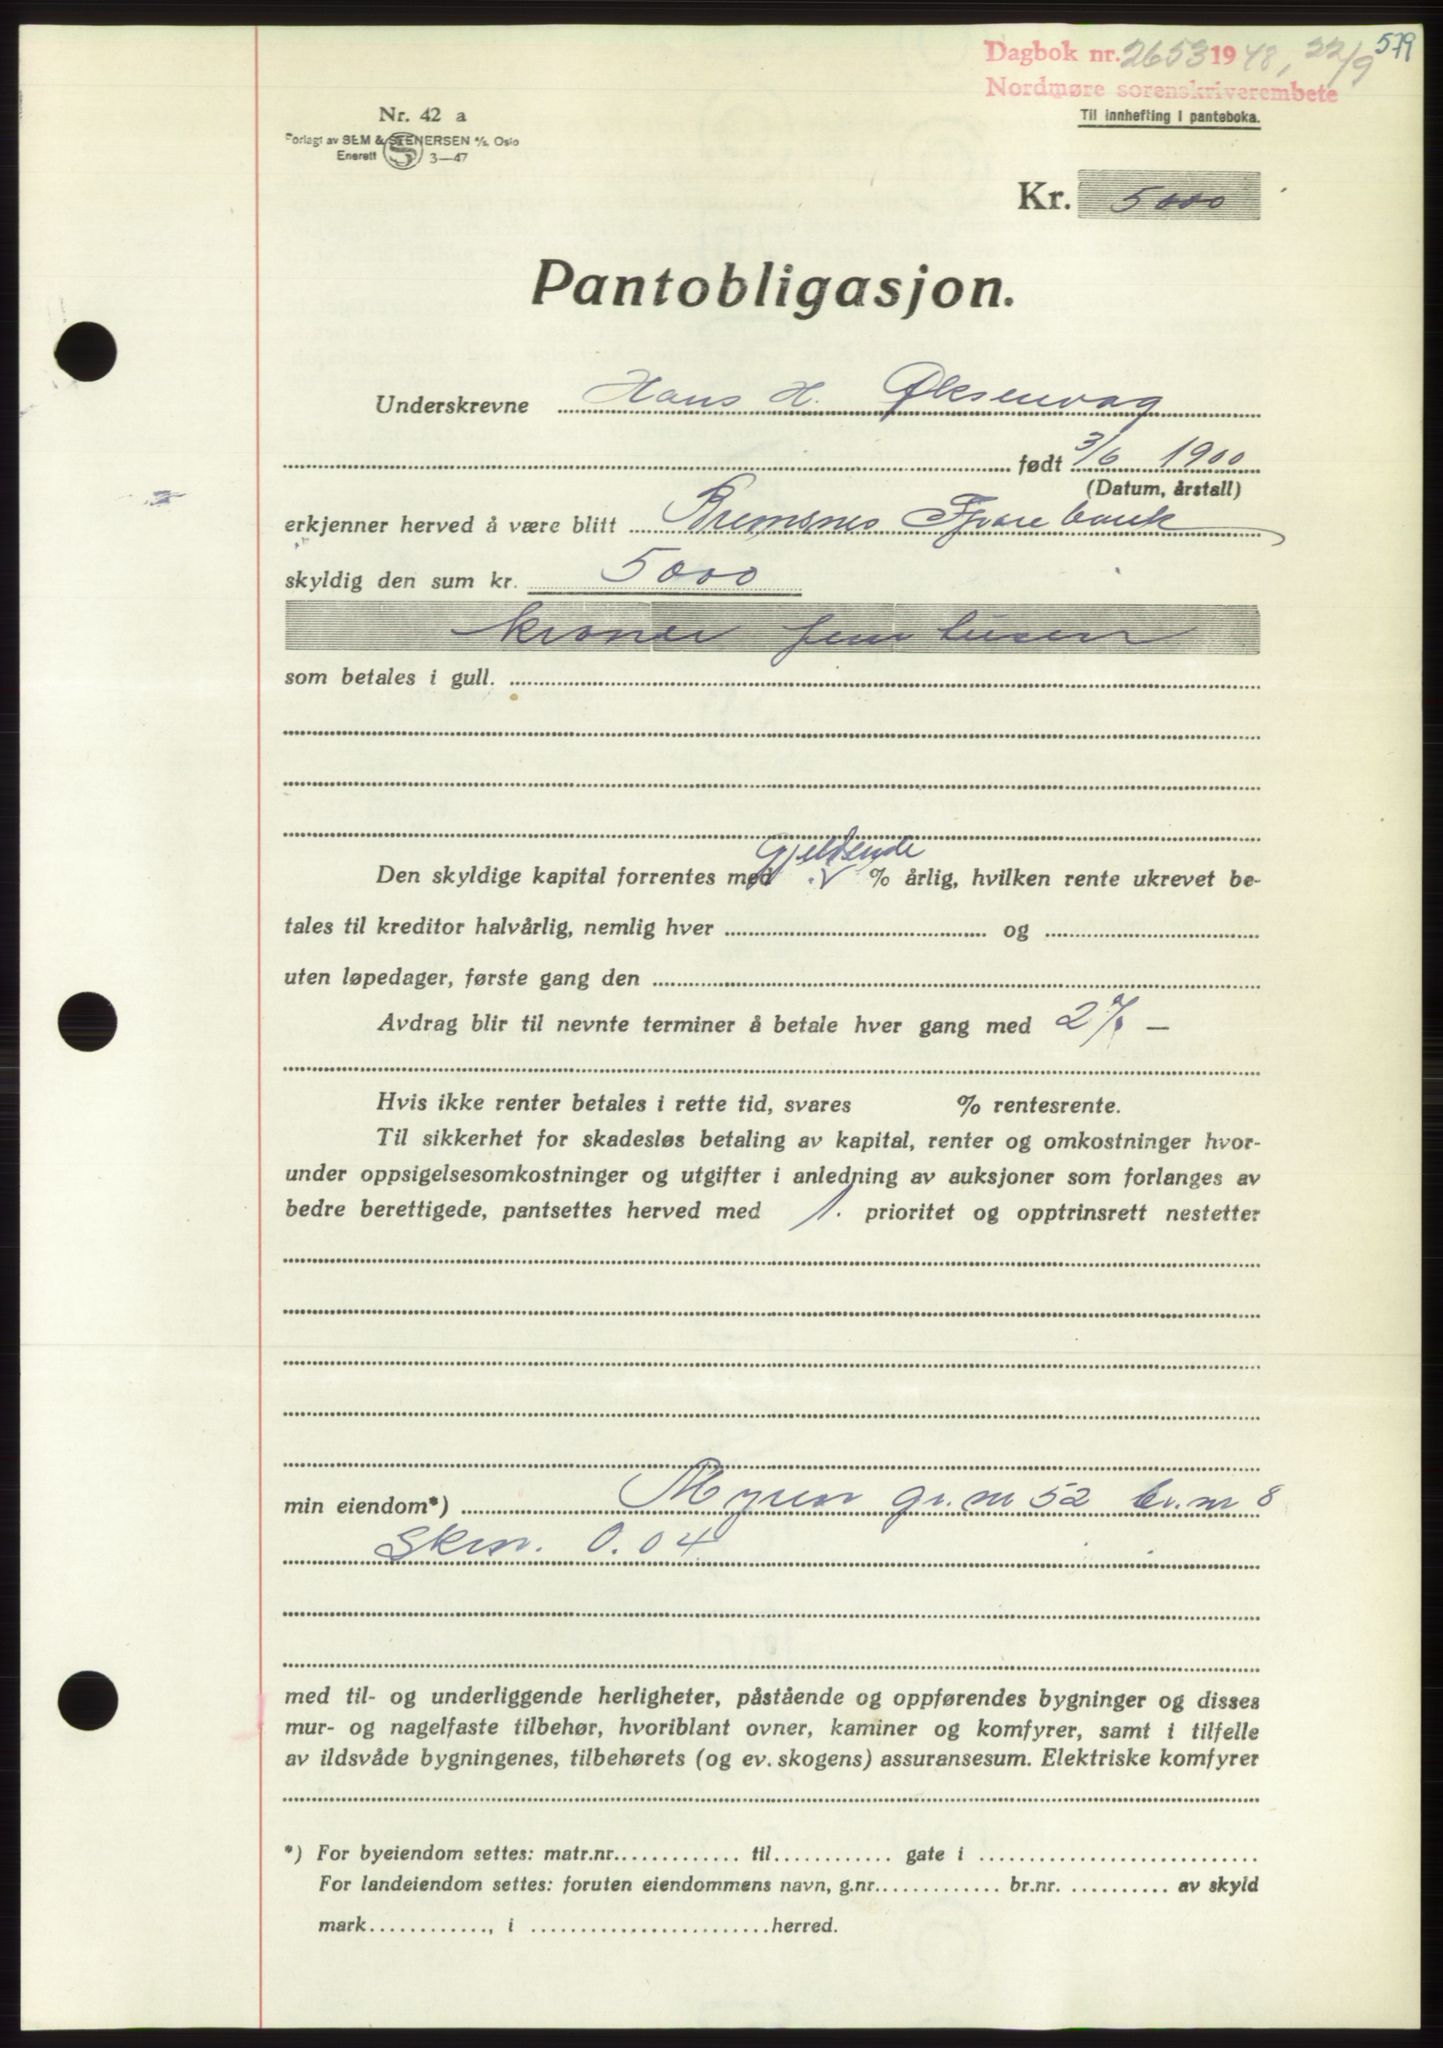 579
Dagbok nr. 2653 1948, 22/9
Nordmøre sorenskriverembete
Til innhefting i panteboka.
Nr. 42 a
Forlagt av SEM & STENERSEN A/S, Oslo
Enerett S 3—47
Kr. 5000
Pantobligasjon.
Underskrevne Hans H. Øksenvag
født 3/6 1900
(Datum, årstall)
erkjenner herved å være blitt Bremsnes Sparebank
skyldig den sum kr. 5000
kroner fem tusen
som betales i gull.
Gjeldende
Den skyldige kapital forrentes med % årlig, hvilken rente ukrevet be-
tales til kreditor halvårlig, nemlig hver og
uten løpedager, første gang den
Avdrag blir til nevnte terminer å betale hver gang med 2% —
Hvis ikke renter betales i rette tid, svares % rentesrente.
Til sikkerhet for skadesløs betaling av kapital, renter og omkostninger hvor-
under oppsigelsesomkostninger og utgifter i anledning av auksjoner som forlanges av
bedre berettigede, pantsettes herved med 1. prioritet og opptrinsrett nestetter
min eiendom*) Myren gr. nr 52 br. nr 8
Skm. 0.04
med til- og underliggende herligheter, påstående og oppførendes bygninger og disses
mur- og nagelfaste tilbehør, hvoriblant ovner, kaminer og komfyrer, samt i tilfelle
av ildsvåde bygningenes, tilbehørets (og ev. skogens) assuransesum. Elektriske komfyrer
*) For byeiendom settes: matr.nr. til gate i
For landeiendom settes: foruten eiendommens navn, g.nr. br.nr. av skyld
mark , i herred.